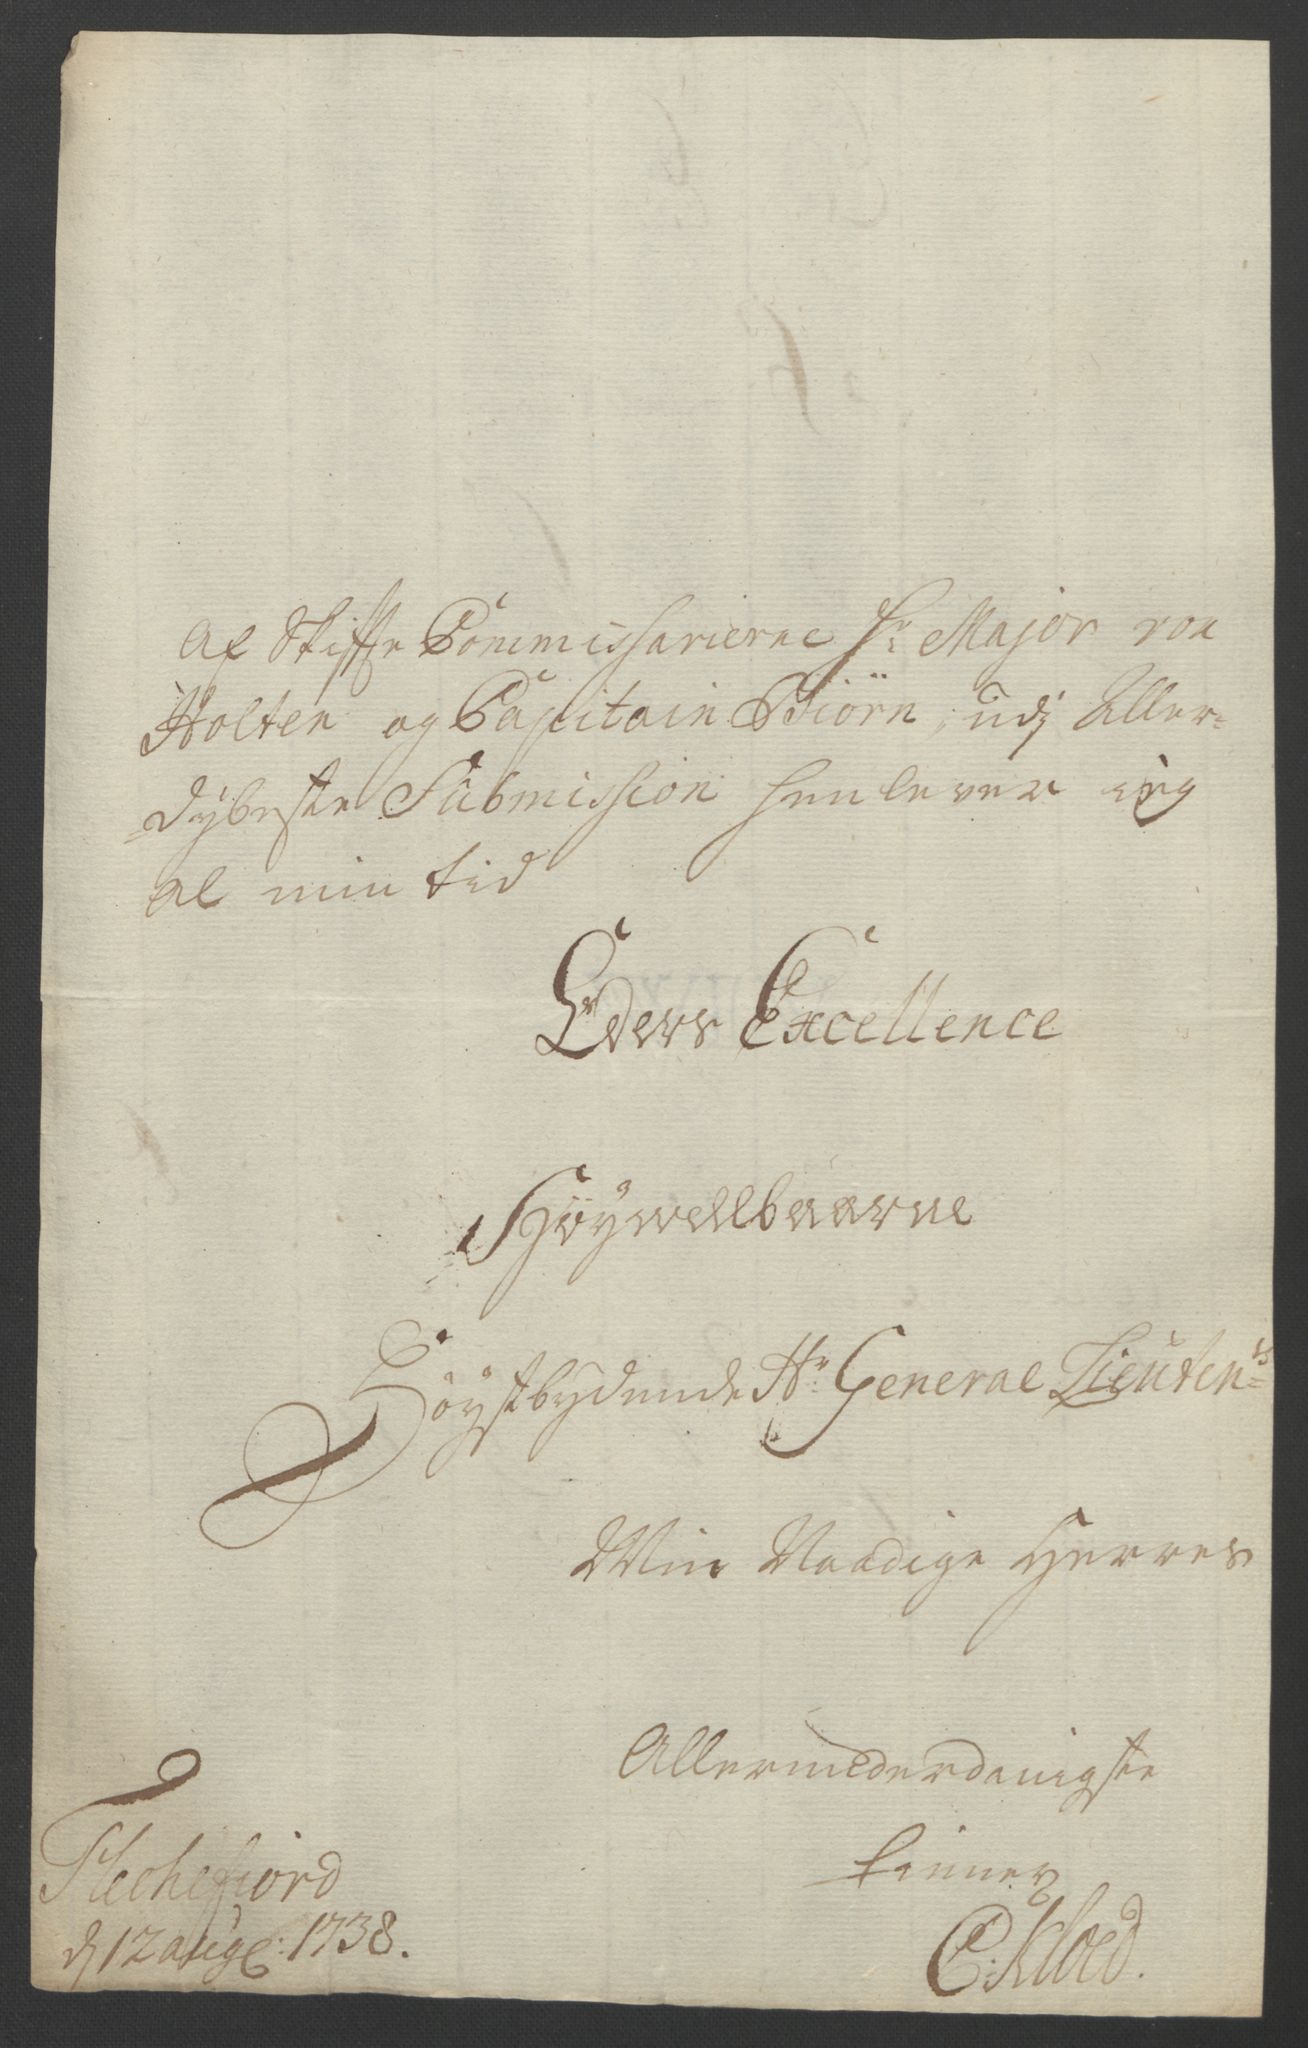 Af Skifte Commissarierne Hr Major von
Holten og Capitain Biörn, udj Aller-
dybeste Submission henlever ieg
al min tid
Eders Excellence
Höywelbaarne
Höystbydende Hr General Lieutents
Min Naadige Herres
Allerunderdanigste
tienner
C: Kloed.
Flechefiord
d 12 aug: 1738.